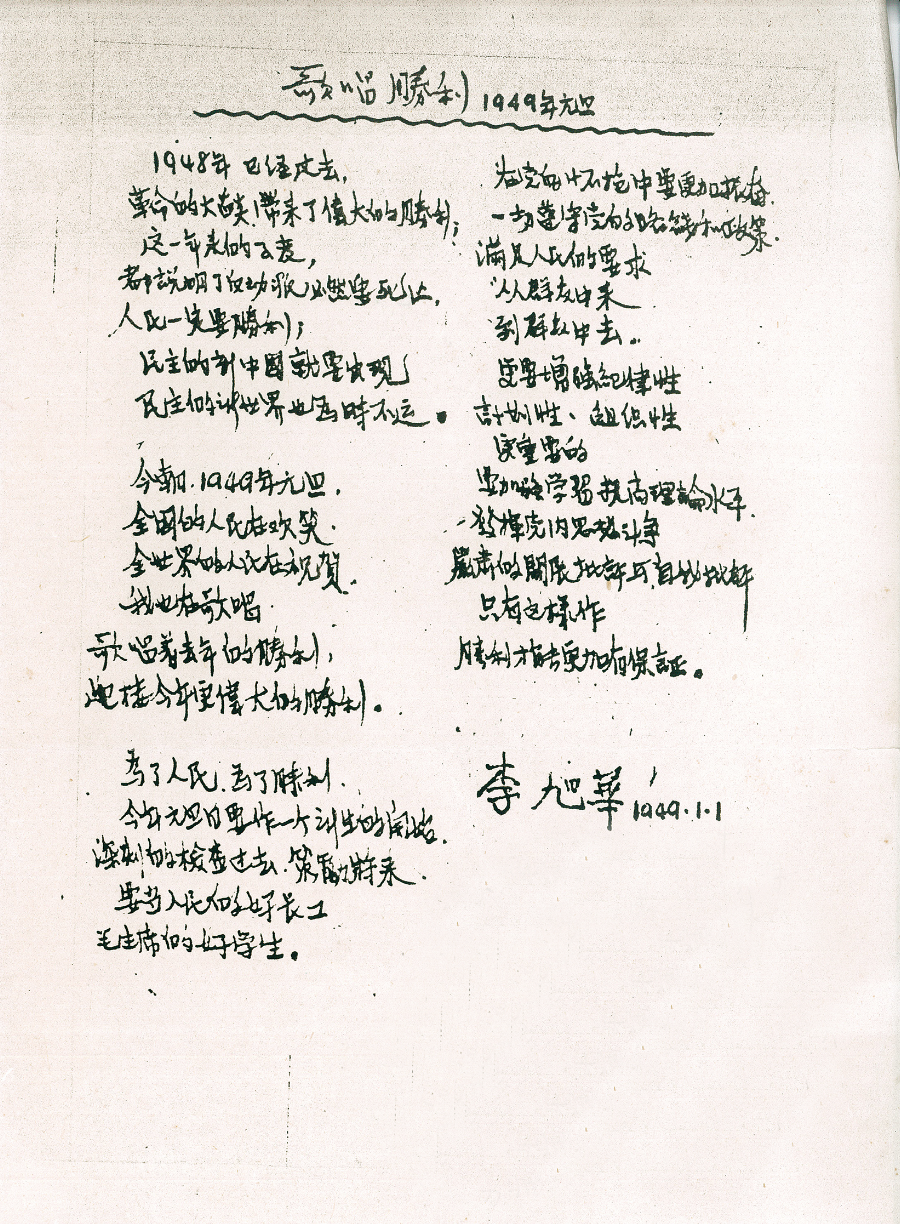 歌唱勝利 1949年元旦
1948年已经过去,
革命的大[]帶来了偉大的勝利;
这一年来的公[],
都説明了反动派必然要死亡,
人民一定要勝利;
民主的新中國就要出現
民主的新世界也為時不远。
今朝.1949年元旦,
全国的人民在欢笑.
全世界的人民在祝賀.
我也在歌唱.
歌唱着去年的勝利,
迎接今年更偉大的勝利。
為了人民.為了勝利.
今年元旦日要作一个新生的開始.
深刻的檢查过去.策勵將来.
要当人民的好長工
毛主席的好学生。
在党的怀抱中要更加振奋.
一切遵守党的路線和政策.
満足人民的要求
从群众中来
到群众中去..
更要增強纪律性
計划性、组织性
更重要的
要加強学習提高理論水平.
發揮党内思想斗争
嚴肃的開展批評与自我批評
只有这樣作
勝利才能更加有保証。
李旭華 1949.1.1